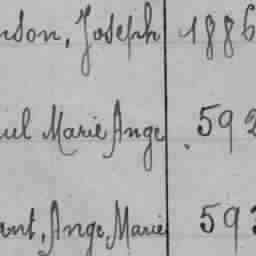 nson, Joseph 1886
ul Marie Ange 592
ant, Ange, Marie 593